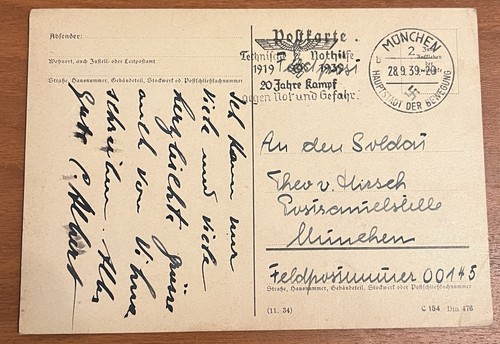 Absender:
Wohnort, auch Zustell- oder Leitpostamt
Straße, Hausnummer, Gebäudeteil, Stockwerk od. Postschließfachnummer
Postkarte
Technische Nothilfe
1919 1939
20 Jahre Kampf
gegen Not und Gefahr.
MÜNCHEN
2
b
28.9.39.-20
HAUPTSTADT DER BEWEGUNG
Ich kann nur
viele und viele
herzlichste Grüsse
auch von
schreiben. Alles
Gute
An den Soldat
Theo v. Hirsch
Postsammelstelle
München
Feldpostnummer 00145
Straße, Hausnummer, Gebäudeteil, Stockwerk oder Postschließfachnummer
(11. 34)
C 154 Din 476